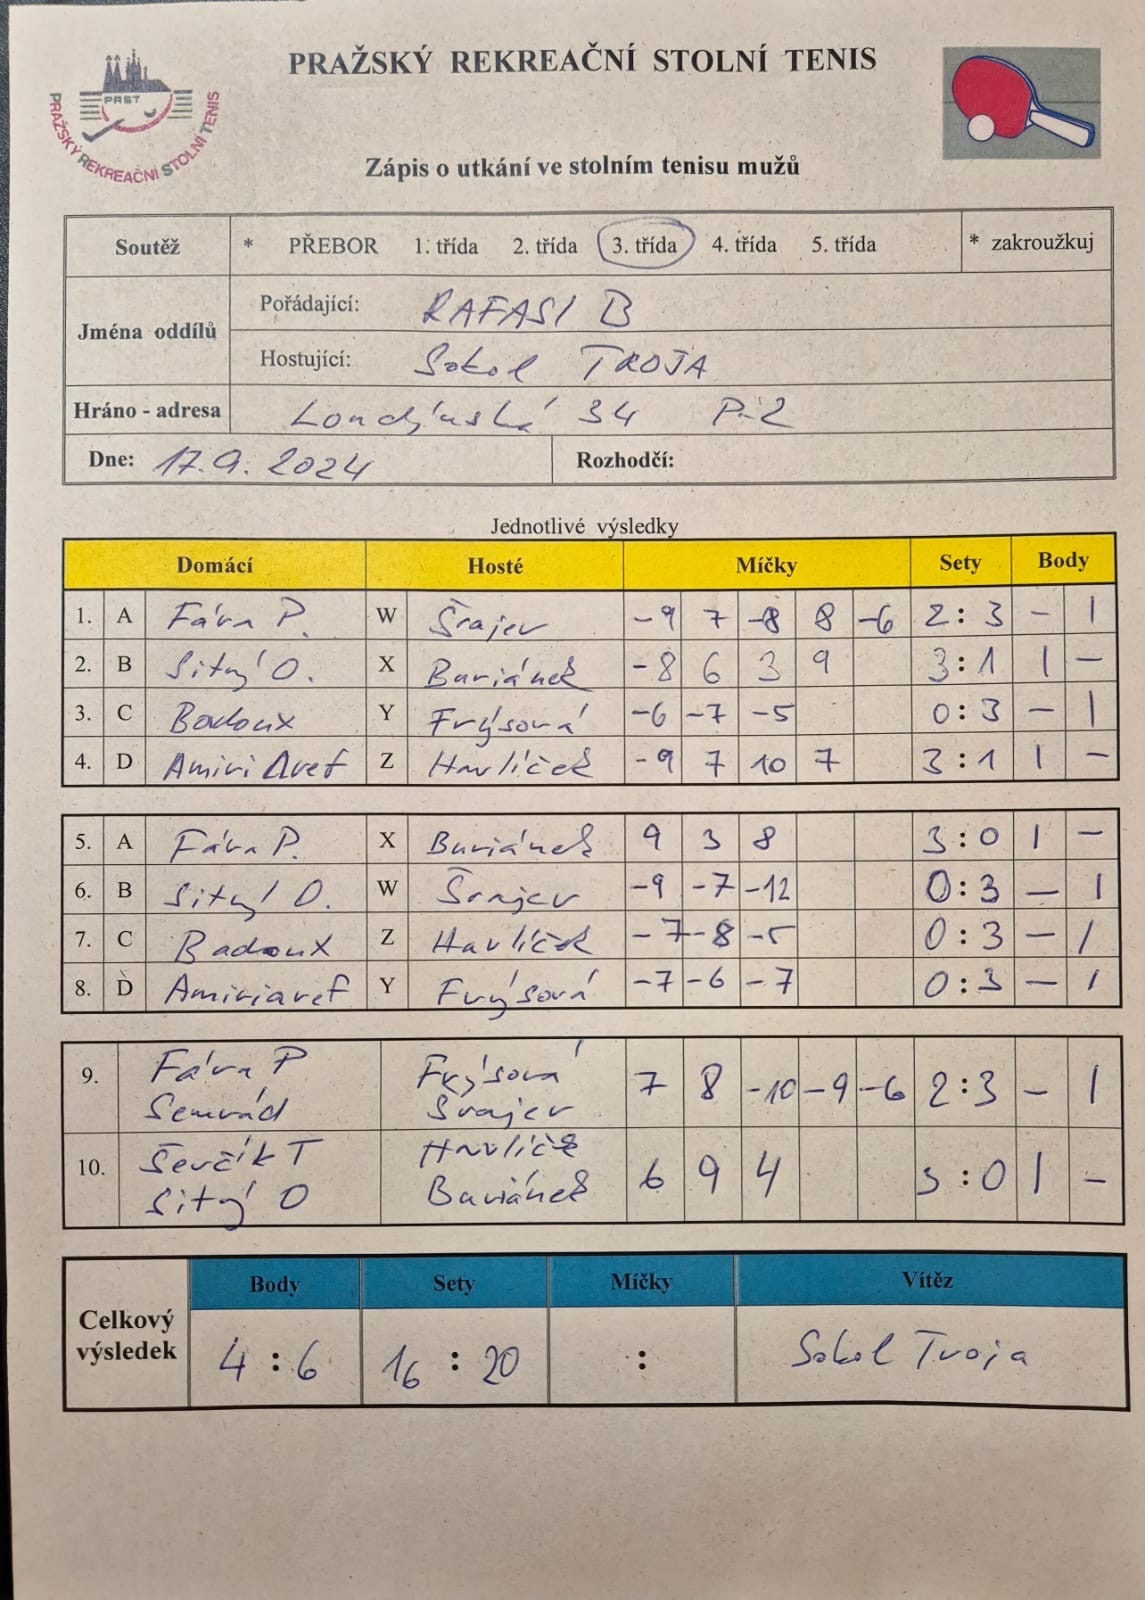 PRAŽSKÝ REKREAČNÍ STOLNÍ TENIS
PRST
PRAŽSKÝ REKREAČNÍ STOLNÍ TENIS
Zápis o utkání ve stolním tenisu mužů
Soutěž * PŘEBOR 1. třída 2. třída 3. třída 4. třída 5. třída * zakroužkuj
Jména oddílů
Pořádající: RAFASI B
Hostující: Sokol TROJA
Hráno - adresa Londýnská 34 P-2
Dne: 17.9.2024 Rozhodčí:
Jednotlivé výsledky
Domácí Hosté Míčky Sety Body
1. A Fára P. W Šrajer -9 7 -8 8 -6 2:3 - 1
2. B Sitný O. X Buriánek -8 6 3 9 3:1 1 -
3. C Badoux Y Frýsová -6 -7 -5 0:3 - 1
4. D Amiri Aref Z Havlíček -9 7 10 7 3:1 1 -
5. A Fára P. X Buriánek 9 3 8 3:0 1 -
6. B Sitný O. W Šrajer -9 -7 -12 0:3 - 1
7. C Badoux Z Havlíček -7 -8 -5 0:3 - 1
8. D Amiriaref Y Frýsová -7 -6 -7 0:3 - 1
9. Fára P Frýsová 7 8 -10 -9 -6 2:3 - 1
Semrád Šrajer
10. Ševčík T Havlíček 6 9 4 3:0 1 -
Sitný O Buriánek
Celkový výsledek
Body Sety Míčky Vítěz
4:6 16:20 : Sokol Troja